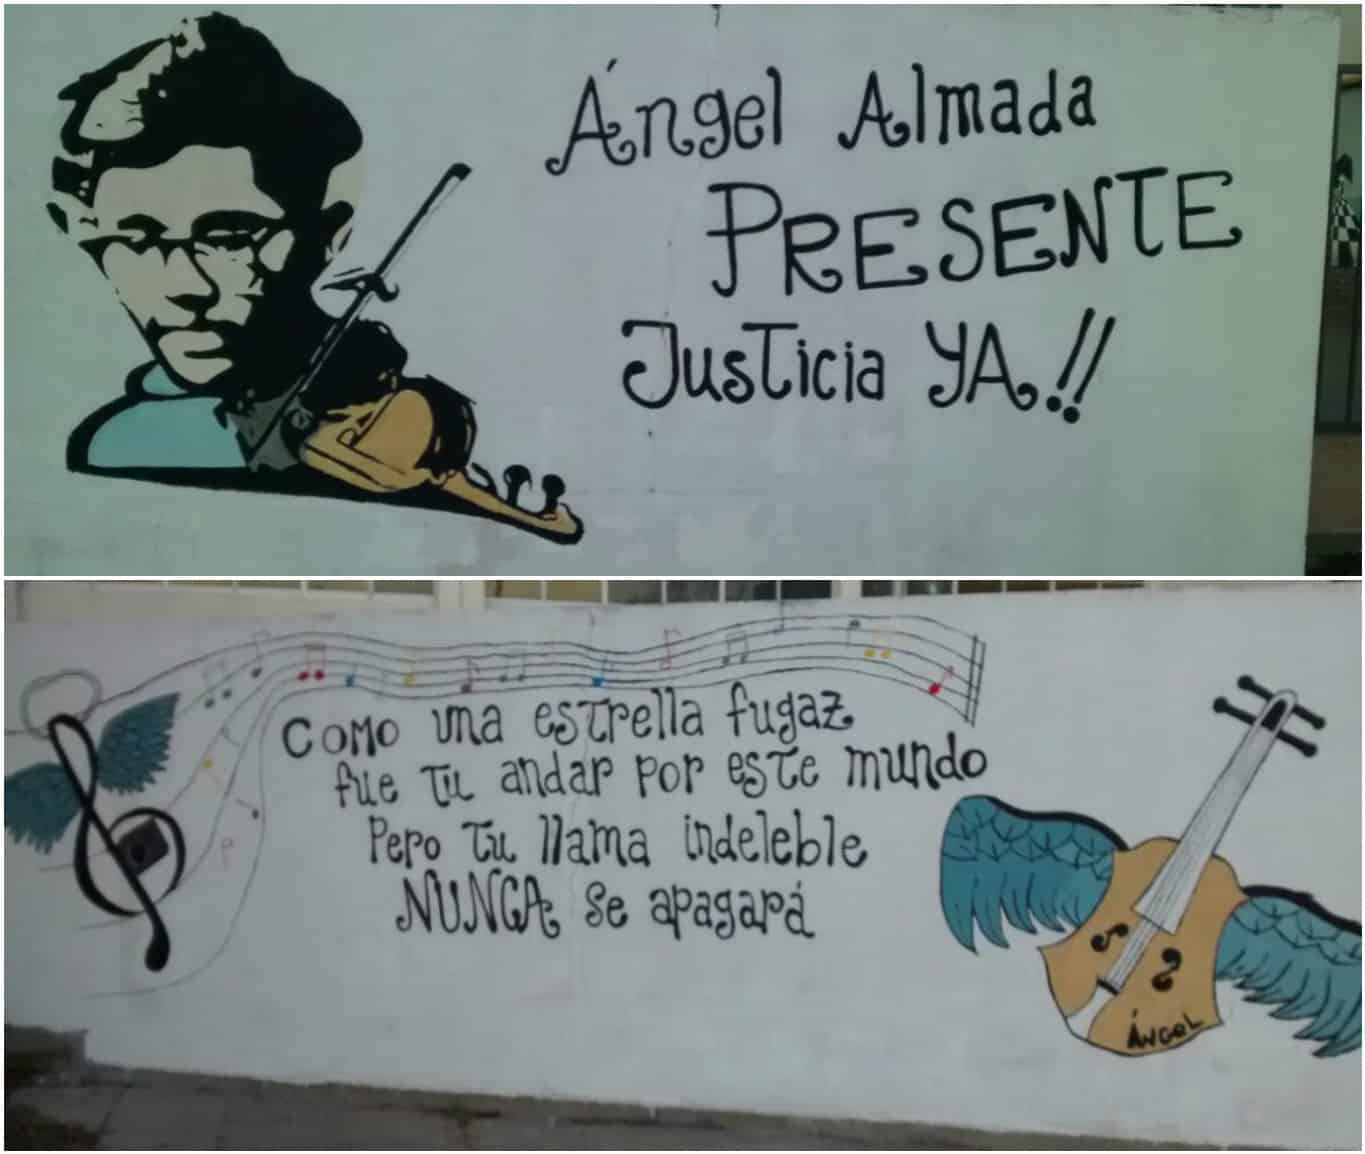 Ángel Almada
PRESENTE
Justicia YA!!
Como una estrella fugaz
fue tu andar por este mundo
Pero tu llama indeleble
NUNCA se apagará
ÁNGEL